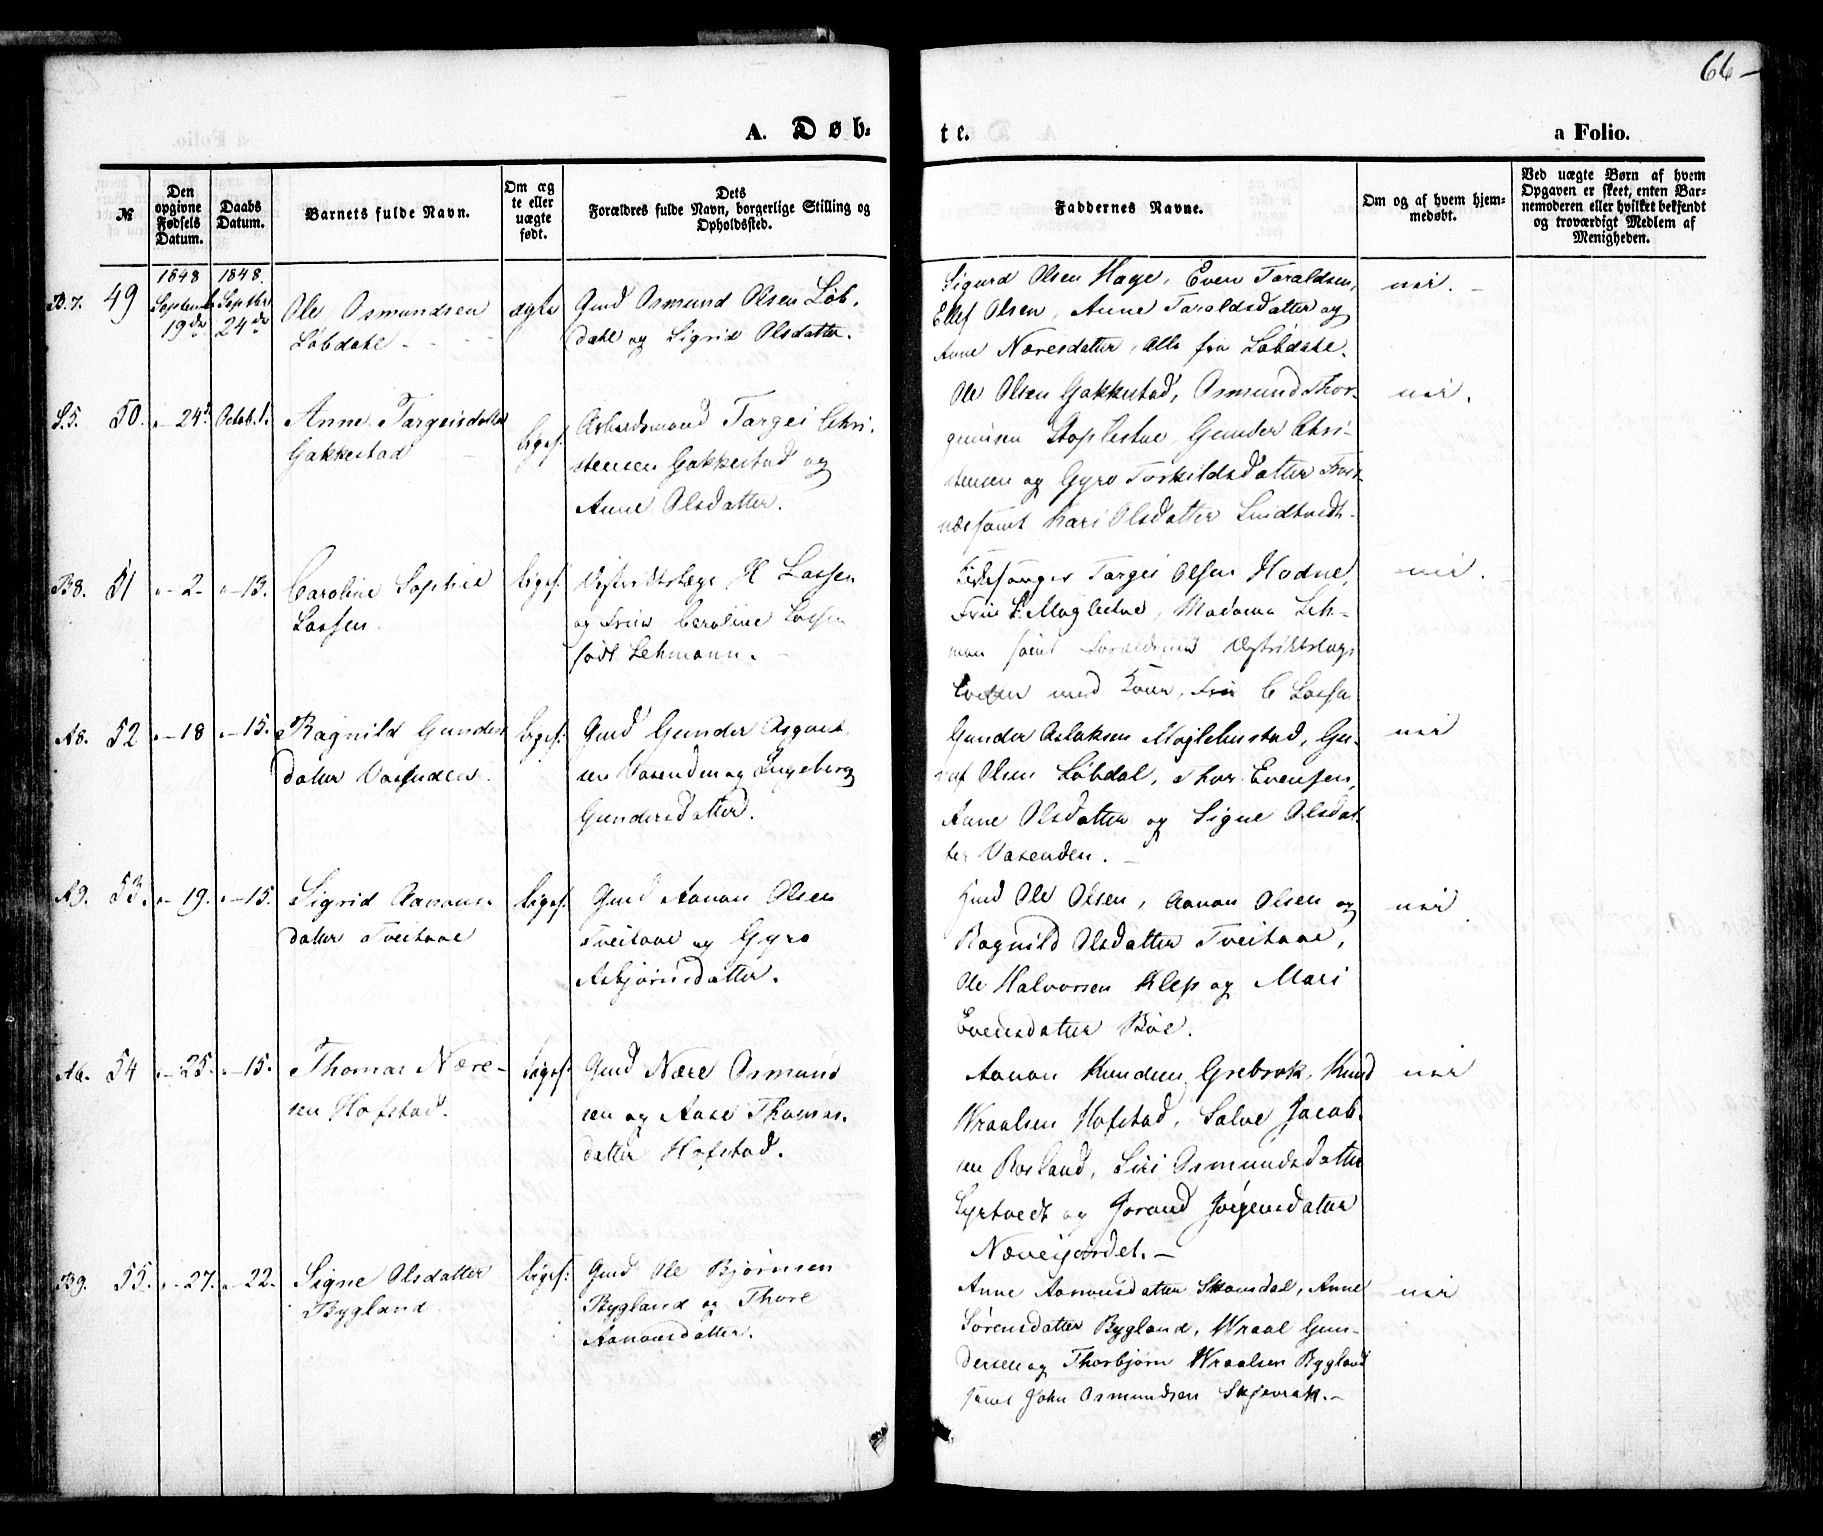 66-
A. Døb-
te.
a Folio.
№
Den opgivne Fødsels Datum.
Daabs Datum.
Barnets fulde Navn.
Om ægte eller uægte født.
Dets Forældres fulde Navn, borgerlige Stilling og Opholdssted.
Faddernes Navne.
Om og af hvem hjemmedøbt.
Ved uægte Børn af hvem Opgaven er skeet, enten Barnemoderen eller hvilket bekjendt og troværdigt Medlem af Menigheden.
1848 1848.
B.7. 49 Septemb 19de Septbr 24de
Ole Osmundsen
Løbdale
ægte
Gmd Osmund Olsen Løb-
dale og Sigrid Olsdatter.
Sigurd Olsen Hage, Even Taraldsen,
Ellef Olsen, Anne Taraldsdatter og
Anne Næresdatter, alle fra Løbdale.
nei.
S.5. 50. 24 Octob. 1.
Anne Targeisdatter
Gakkestad
ligesf:
Arbeidsmand Targei Chri-
stensen Gakkestad og
Anne Olsdatter.
Ole Olsen Gakkestad, Osmund Thor-
Gunder Chri-
stensen og Gyro Torkildsdatter
samt Kari Olsdatter Lindtvedt.
nei.
B8. 51 "- 2- "- 13.
Caroline Sophie
Lassen.
ligesf:
H Lassen
og Frue Caroline Lassen
født Lehmann.
Kirkesanger Targei Olsen Hodne,
Frue Moglestue, Madame Leh-
man samt
med Kone, Frue C Lassen
nei.
A8. 52 "- 18 "- 15.
Ragnild Gunders
datter Vasenden.
ligesf:
Gmd Gunder Asgout
sen Vasenden og Ingeberg
Gundersdatter.
Gunder Aslaksen Moglehustad, Gu-
Olsen Løbdal, Thor Evensen,
Anne Olsdatter og Signe Olsdat-
ter Vasenden.
nei
A9. 53. "- 19. "- 15.
Sigrid Aanons-
datter Tveitaae
ligesf:
Gmd Aanon Olsen
Tveitaae og Gyro
Asbjørnsdatter.
Gmd Ole Olsen, Aanon Olsen og
Ragnild Olsdatter Tveitaae,
Ole Halvorsen Klep og Mari
Evensdatter Bøe.
nei
A6. 54 "- 25. "- 15.
Thomas Nære-
sen Hofstad.
ligesf:
Gmd Nære Osmund
sen og Aase Thomas-
datter Hofstad.
Aanon Knudsen Grebrok, Knud
Wraalsen Hofstad, Salve Jacob-
sen Rosland, Siri Osmundsdatter
Lyrtvedt og Jorand Jørgensdatter
nei
B9. 55. "- 27. "- 22.
Signe Olsdatter
Bygland
ligesf:
Gmd Ole Bjørnsen
Bygland og Thore
Aanonsdatter.
Anne Aanonsdatter Skomdal, Anne
Sørensdatter Bygland, Wraal Gun-
dersen og Thorbjørn Wraalsen Bygland
samt John Osmundsen Skjevrak.
nei